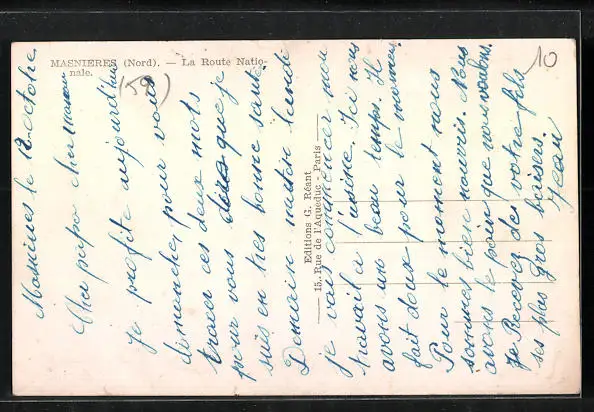 MASNIERES (Nord). — La Route Natio-
nale.
(59)
10
Masnières le 12 octobre
Cher papa cher maman
Je profite aujourd'hui
dimanche pour vous
tracer ces deux mots
pour vous dire que je
suis en très bonne santé
Demain matin lundi
je vais commencer mon
travail a l'usine. Ici nous
avons un beau temps. Il
fait doux pour le moment.
Pour le moment nous
sommes bien nourris. Nous
avons le pain que nous voulons.
Je Recevez de votre fils
ses plus Gros baisers.
Jean
Editions G. Réant
15, Rue de l'Aqueduc - Paris